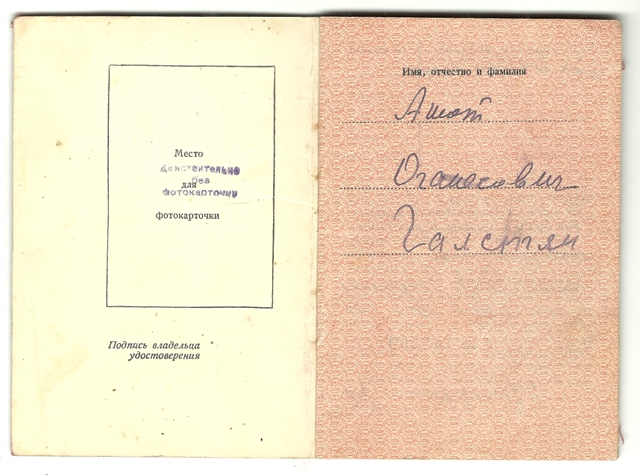 Место
Действительно
без
для
фотокарточки
фотокарточки
Подпись владельца
удостоверения
Имя, отчество и фамилия
Ашот
Оганесович
Галстян